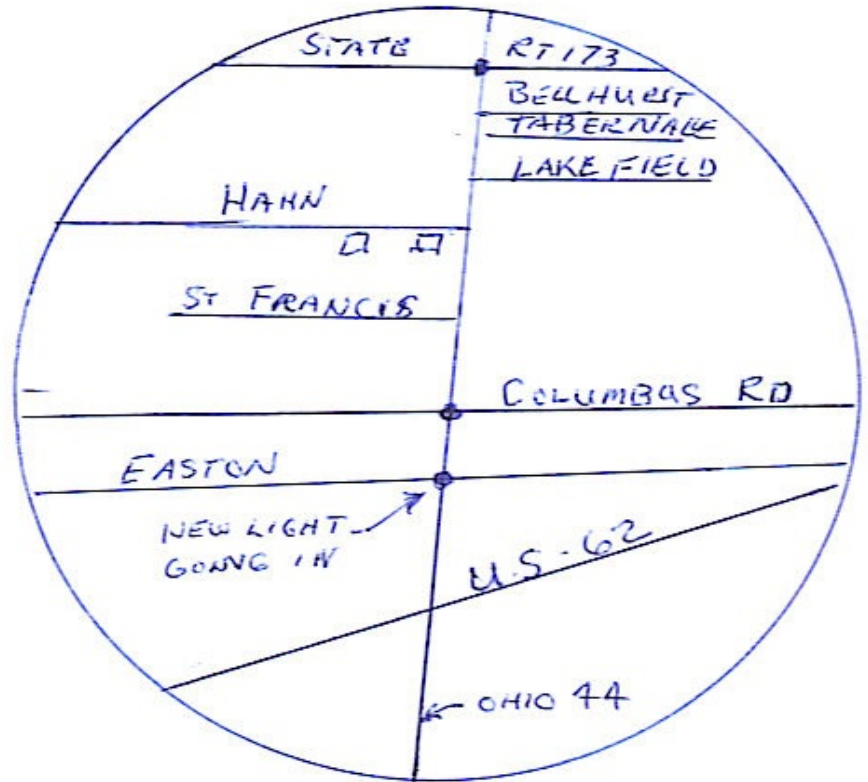 STATE RT 173
BELLHURST
TABERNALE
LAKE FIELD
HAHN
ST FRANCIS
COLUMBUS RD
EASTON
NEW LIGHT
GONVG IN
U.S-62
OHIO 44